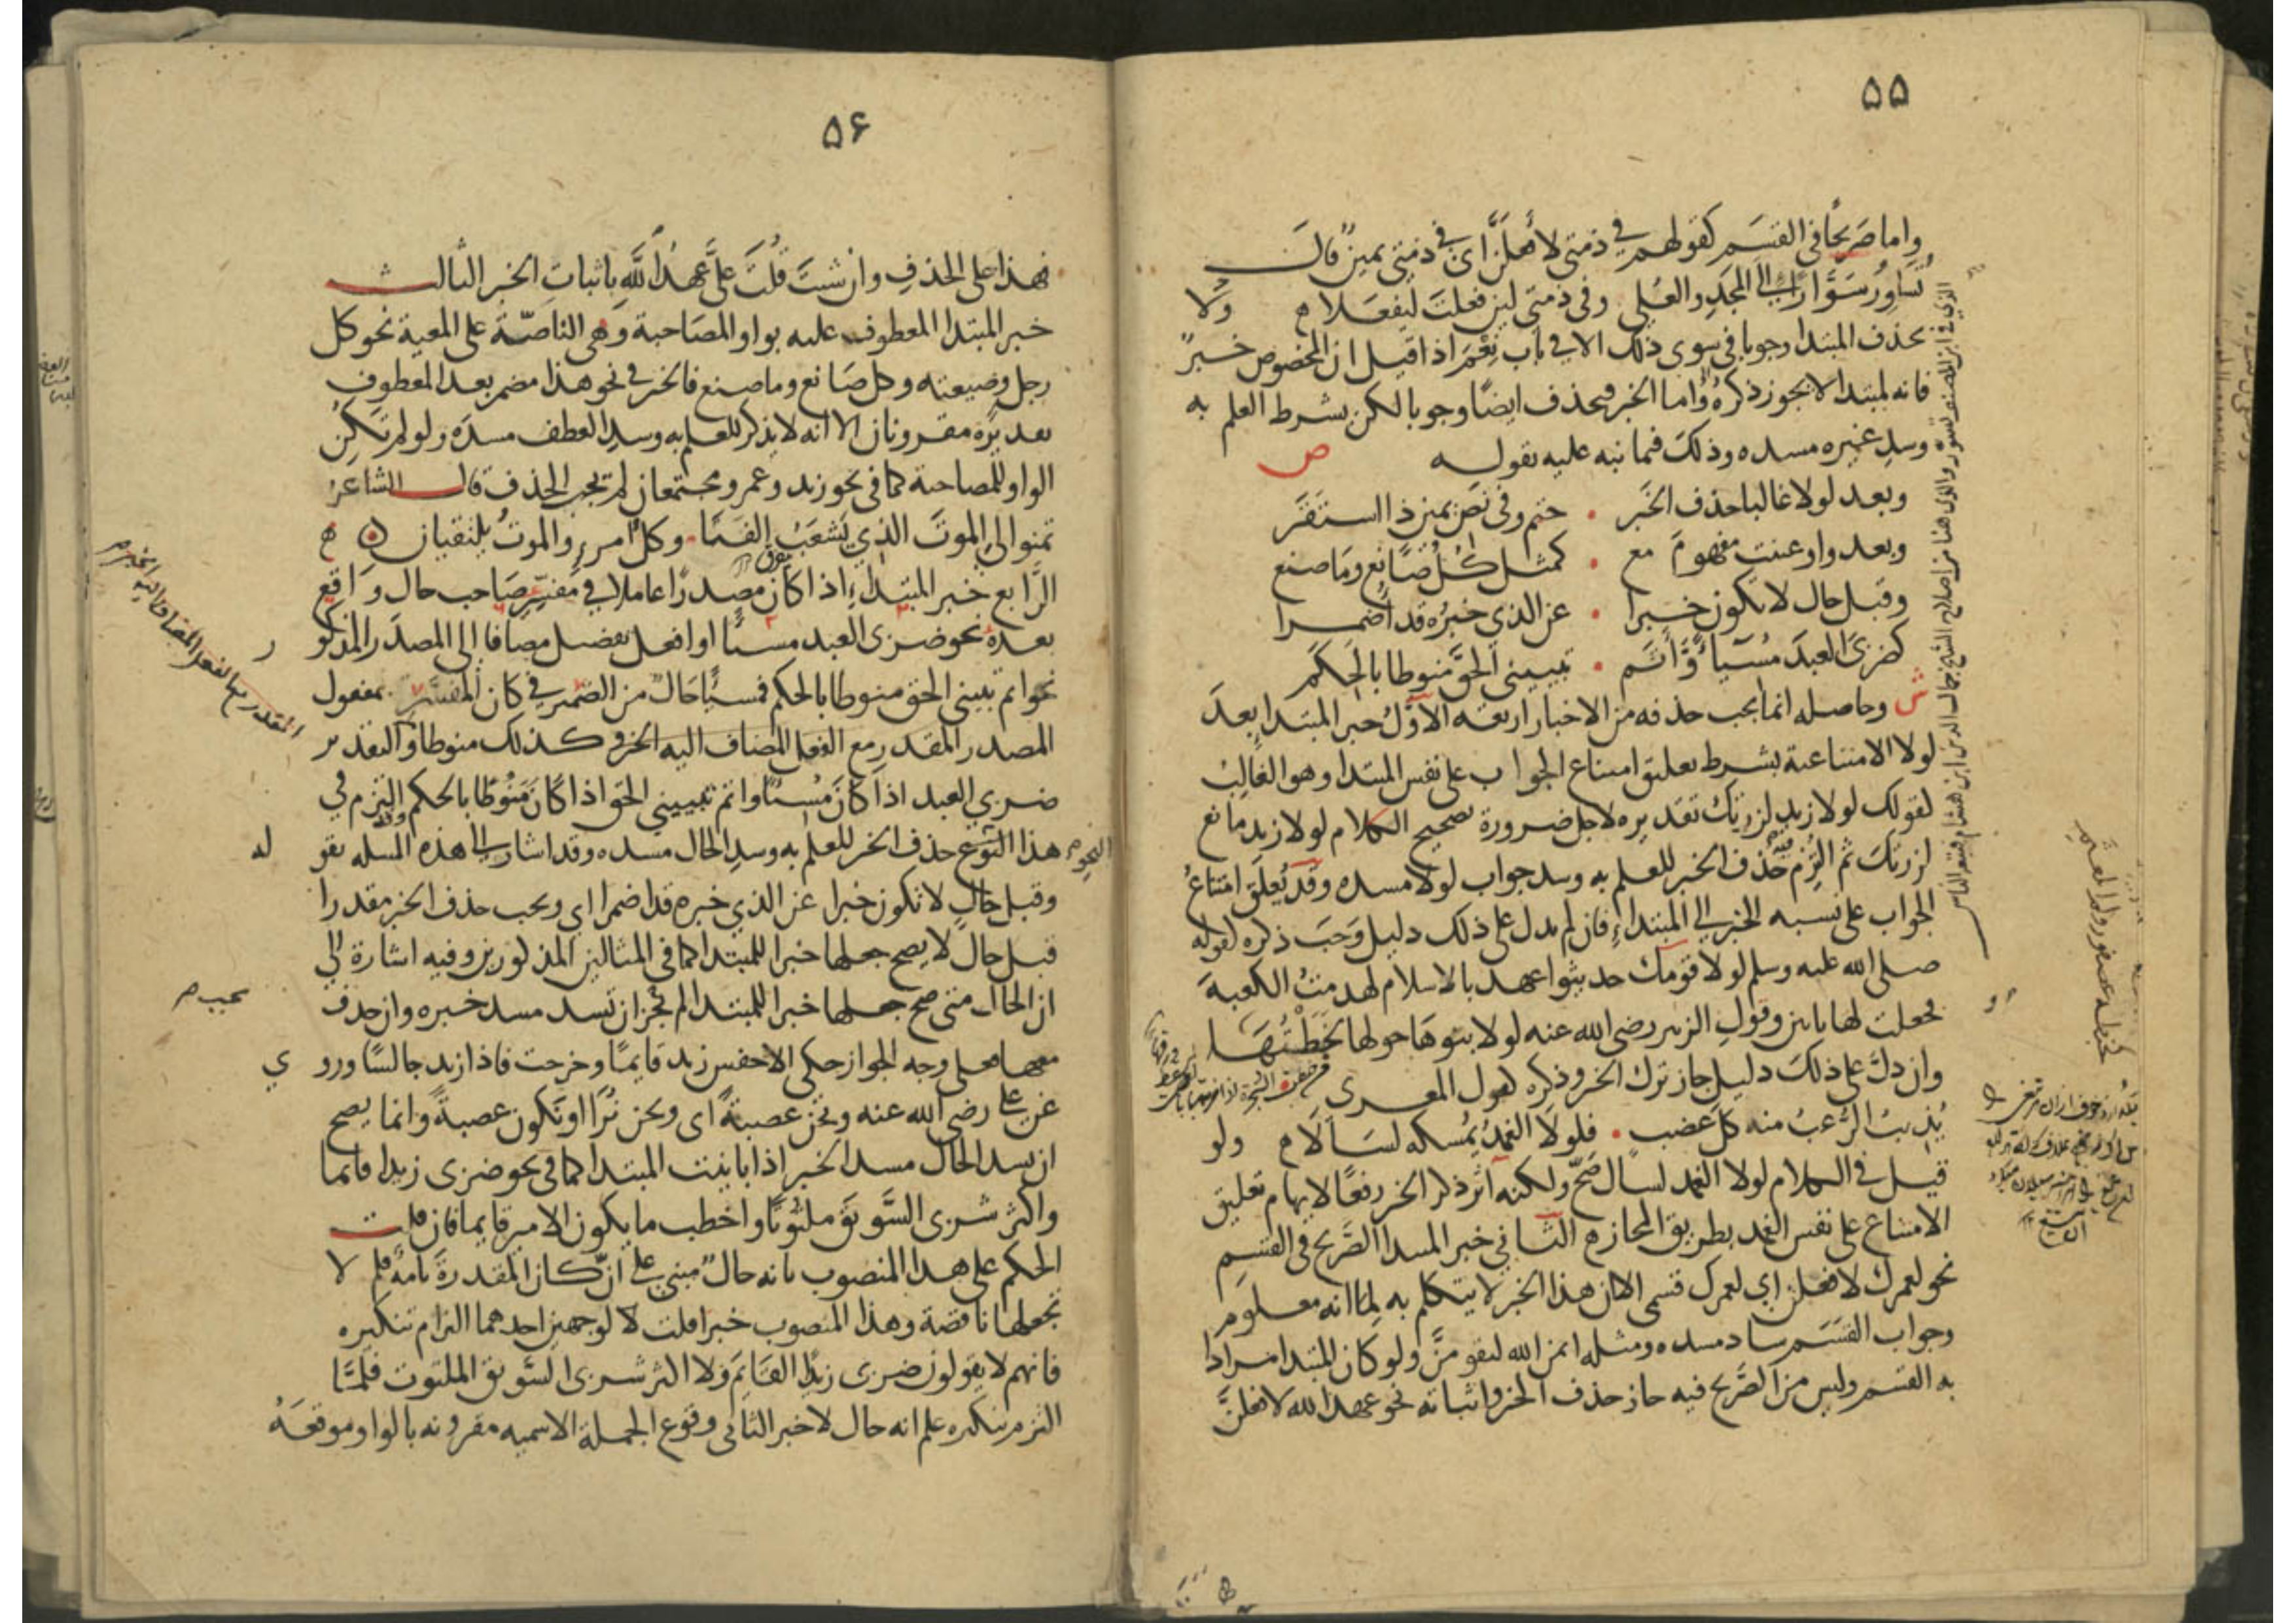 ۵۵
واما صَريحًا في القسَم كقولهم في ذمتي لأفعلَنَّ اي في ذمتي يمينٌ قالت
تُسَاوِرُ سَوَّارًا الى المجَدِ والعُلى وفي ذمتي لين فعلتَ ليفعَلا ولا
يحذف المبتدا وجوبا في سوى ذلك الا في باب نِعْمَ اذا قيل ان المخصوص خبرٌ
فانه لمبتدا لا يجوز ذكرهُ واما الخبر فيحذف ايضًا وجوبا لكن بشرط العلم به
وسدِ غيره مسده وذلك فيما نبه عليه بقوله ص
وبعد لولا غالبا حذف الخَبر • حتم وفي نص يمين ذا استَقَر
وبعد واو عنيت مفهومَ مع • كمثل كُلُ صَانع ومَا صنع
وقبل حال لا يكون خبرا • عن الذي خبرُه قد اُضمرا
كضربىَ العبدَ مُسيًا وَّأتَم • تبييني الحقَّ مَنوطا بالحَكم
ش وحاصله انما يجب حذفه من الاخبار اربعة الاوَّلُ خبر المبتدا بعدَ
لولا الامتناعية بشرط تعليق امتناع الجواب على نفس المبتدا وهو الغالِبُ
لقولك لولا زيد لزرتك تقديره لاجل ضرورة تصحيح الكلام لولا زيد مانع
لزرتك ثم التُزِم حذف الخبر للعلم به وسد جواب لولا مسده وقد يُعلَق امتناعُ
الجواب على نسبه الخبر الى المبتداءِ فان لم يدل على ذلك دليل وَجَبَ ذكره لقوله
صلى الله عليه وسلم لولا قومك حديثوا عهد بالاسلام لهدمتُ الكعبة
فجعلت لها بابين وقول الزبير رضى الله عنه لولا بنوهَا حولها لخَبَطْتُهَا
وان دلَّ على ذلكَ دليل جاز ترك الخبر وذكره لقول المعرى
يُذيبُ الرُّعبُ منه كلَّ عَضب • فلولا الغِمدُ يُمسكه لسَالا ولو
قيل في الكلام لولا الغمد لسال صَحّ ولكنه آثر ذكر الخبر رفعًا لايهام تعليق
الامتناع على نفس الغمد بطريق المجاز الثاني خبر المبتدا الصَّريح في القسَم
نحو لعمرك لافعلن اي لعمرك قسمى الا ان هذا الخبر لا يتكلم به لِما انه معلوم
وجواب القسَم ساد مسده ومثله ايمن الله ليقومَنَّ ولو كان المبتدا مرادا
به القسَم وليس من الصَّريح فيه جاز حذف الخبر واثباته نحو عهد الله لافعلنَّ
۵۶
فهذا على الحذفِ وان شئتَ قُلتَ علىَّ عَهدُ اللَّهِ باثبات الخبر الثالث
خبر المبتدا المعطوف عليه بواو المصَاحبة وهي الناصّة على المعية نحو كل
رجل وضيعته وكل صَانع وما صنع فالخبر في نحو هذا مضمر بعد المعطوف
تقديرُه مقرونان الا انه لا يذكر للعلم به وسدِ العطف مسدَه ولو لم تكنِ
الواو للمصاحبة كما في نحو زيد وعمرو مجتمعان لم يجب الحذف قال الشاعرُ
تمنوا لى الموتَ الذي يَشعَبُ الفَتَى • وكلُّ امرءٍ والموتُ يلتقيان
الرَّابع خبر المبتداءِ اذا كان مصدرًا عاملا في مفسِّرِ صَاحب حال واقع
بعدهُ نحو ضربى العبد مسيئًا او افعل تفضيل مضافا الى المصدَر المذكور
نحو اتم تبيينى الحق منوطا بالحكم فمسيئًا حالٌ من الضّمير في كان المفسَّر بمفعول
المصدر المقدر مع الفعل المضاف اليه الخبر وكذلك منوطا والتقدير
ضربي العبد اذا كانَ مُسيئًا واتم تبييني الحَق اذا كانَ مَنُوطًا بالحكم والتزم في
هذا النوع حذف الخبر للعلم به وسدِ الحال مسده وقد اشار الى هذه المسله بقوله
وقبل حالٍ لا تكون خبرا عن الذي خبره قد اضمرا اي ويجب حذف الخبر مقدرا
قبل حالٍ لا يصح جعلها خبرا للمبتدا كما في المثالين المذكورين وفيه اشارة الي
ان الحال متى صح جعلها خبرا للمبتدا لم يجز ان تسد مسد خبره وان حذف
معها فعلى وجه الجواز حكى الاخفس زيد قايمًا وخرجت فاذا زيد جالسًا وروي
عن على رضى الله عنه ونحن عصبةً اى ونحن نُرَا او نكون عصبةً وانما يصح
ان يسد الحال مسد الخبر اذا باينت المبتدا كما في نحو ضربى زيدا قائما
واكثر شربى السَّويقَ ملتُوتًا واخطب ما يكون الامير قايما فان قلت
الحكم على هذا المنصوب بانه حالٌ مبني على انّ كان المقدرةَ تامةٌ فلم لا
نجعلها ناقصة وهذا المنصوب خبرا قلت لا لوجهين احدهما التزام تنكيره
فانهم لا يقولون ضربى زيدًا القائِمَ ولا اكثر شربى السَّويق الملتوت فلمَّا
التزم تنكيره علم انه حال لا خبر الثانى وقوع الجملة الاسميه مقرونه بالواو موقعَهُ